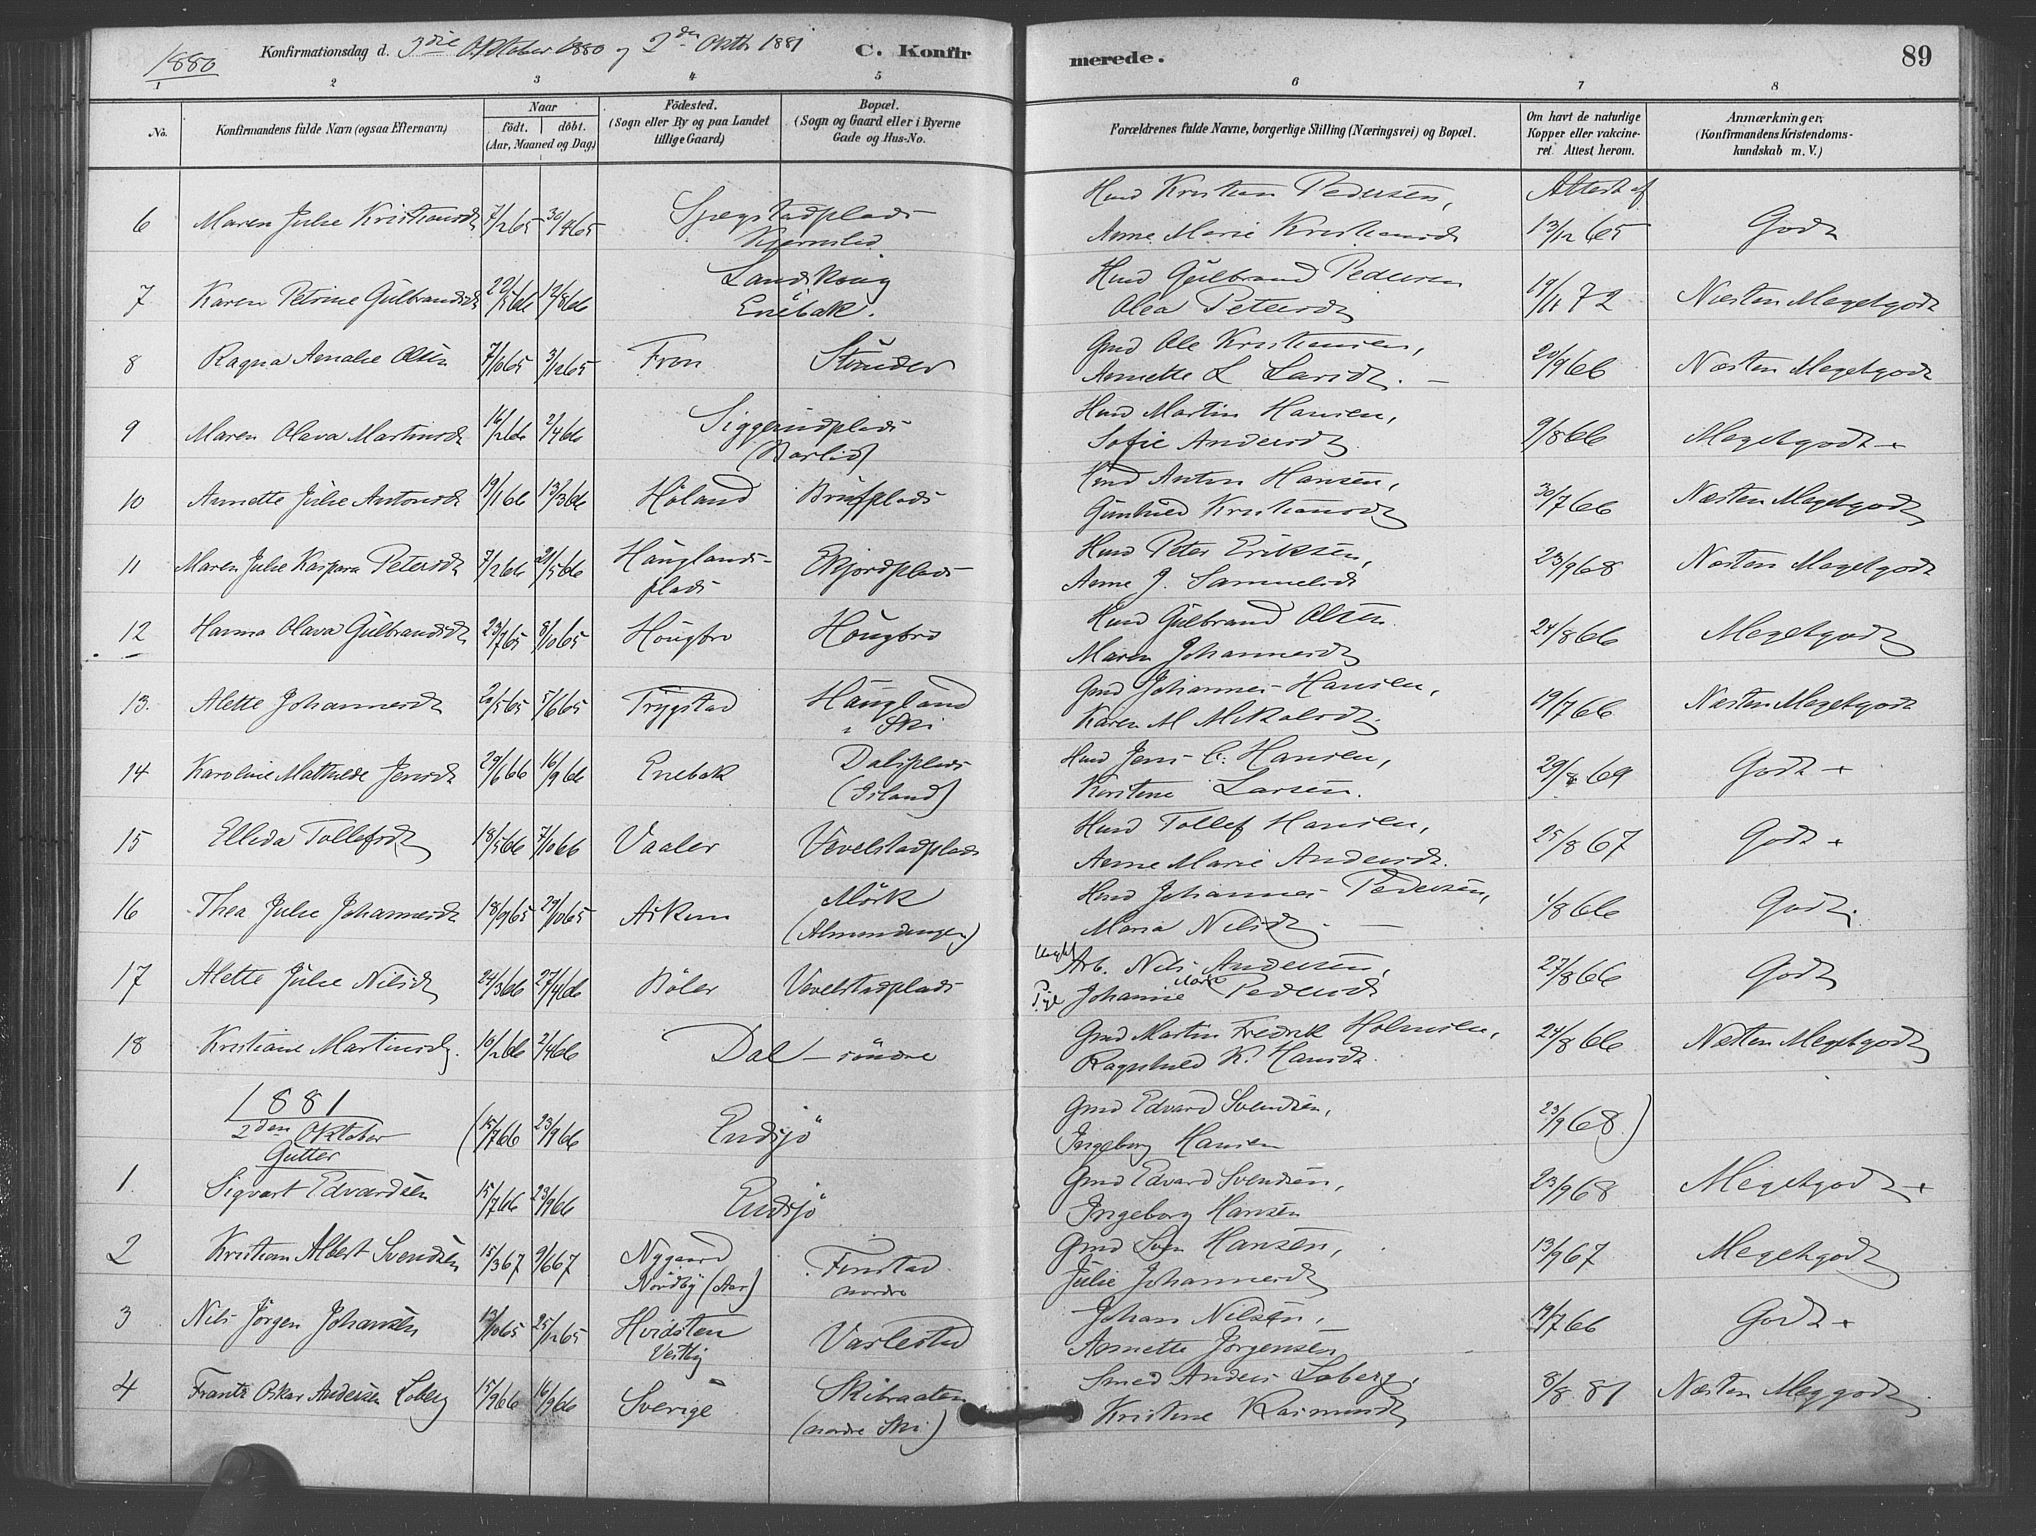 1880 Konfirmationsdag d. 3die Oktober 1880 og 2den Oktbr 1881 C. Konfirmerede. 89
1 2 3 4 5 6 7 8
No. Konfirmandens fulde Navn (ogsaa Efternavn) Naar født. døbt. (Aar, Maaned og Dag) Fødested. (Sogn eller By og paa Landet tillige Gaard) Bopæl. (Sogn og Gaard eller i Byerne Gade og Hus-No. Forældrenes fulde Navne, borgerlige Stilling (Næringsvei) og Bopæl. Om havt de naturlige Kopper eller vakcineret. Attest herom. Anmærkninger, (Konfirmandens Kristendomskundskab m. V.)
6 Maren Julie Kristiansdt 7/2 65 30/4 65 Husmd Kristian Pedersen, Attest af
Anne Marie Kristiansdt 13/12 65 Godt
7 Karen Petrine Gulbrandsdt 22/5 66 12/8 66 Landskoug Husmd Gulbrand Pedersen
Enebak. Olea Petersdt 19/11 72 Næsten Megetgodt
8 Ragna Amalie Olsen 7/10 65 3/12 65 Fron Stunder Gmd Ole Kristiansen,
Annette L Larsdt. 20/9 66 Næsten Megetgodt
9 Maren Olava Martinsdt 16/2 66 2/4 66 Siggerudplads Husmd Martin Hansen,
Sofie Andersdt 9/8 66 Megetgodt +
10 Annette Julie Antonsdt 19/1 66 13/3 66 Høland Husmd Anton Hansen,
Gunhild Kristiansdt 30/7 66 Næsten Megetgodt
11 Maren Julie Kaspara Petersdt 7/2 66 21/5 66 Haugland- Ekjordplads Husmd Peter Eriksen,
plads Anne J. Sammelsdt 23/9 68 Næsten Megetgodt
12 Hanna Olava Gulbrandsdt 23/7 65 8/10 65 Hougbro Hougbro Husmd Gulbrand Olsen
Maren Johannesdt 24/8 66 Megetgodt
13. Alette Johannesdt 20/5 65 5/6 65 Trygstad Haugland Gmd Johannes Hansen,
i Ski Karen M Mikalsdt. 19/7 66 Næsten Megetgodt
14 Karoline Mathilde Jensdt 29/6 66 16/9 66 Enebak Dalsplads Husmd Jens C. Hansen,
(Island) Kirstine Larsen. 29/8 69 Godt +
15 Elleda Tollefsdt 18/5 66 7/10 66 Vaaler Vevelstadplads Husmd Tollef Hansen,
Anne Marie Andersdt. 25/8 67 Godt +
16 Thea Julie Johannesdt 18/9 65 29/10 65 Askim Mörk Husmd Johannes Pedersen,
(Almendingen) Maria Nilsdt. 1/8 66 Godt.
17 Alette Julie Nilsdt 24/3 66 27/4 66 Böler Vevelstadplads Ungkl Arb. Nils Andersen,
Pige Johanne Marie Pedersdt 27/8 66 Godt
18 Kristiane Martinsdt. 16/2 66 2/4 66 Dal søndre Gmd Martin Fredrik Holmsen,
Ragnhild K. Hansdt. 24/8 66 Næsten Megetgodt
1881
2den Oktober (15/7 66 23/9 66 Endsjö Gmd Edvard Svendsen,
Gutter Ingeborg Hansen 23/9 68)
1. Sigvart Edvardsen 15/7 66 23/9 66 Endsjö Gmd Edvard Svendsen,
Ingeborg Hansen 23/9 68 Megetgodt +
2 Kristian Albert Svendsen 15/3 67 9/6 67 Nygaard Finstad Gmd Sven Hansen,
Nordby (Aas) nordre Julie Johannesdt 13/9 67 Megetgodt
3 Nils Jörgen Johansen 12/10 65 25/12 65 Hvidsten Vaslestad Johan Nilsen,
Vestby Annette Jörgensen 19/7 66 Godt +
4 Frantz Oskar Andersen Loberg 15/9 66 16/9 66 Sverige Skibraaten Smed Anders Loberg,
(nordre Ski) Kristine Rasmusdt 8/8 81 Næsten Meggodt